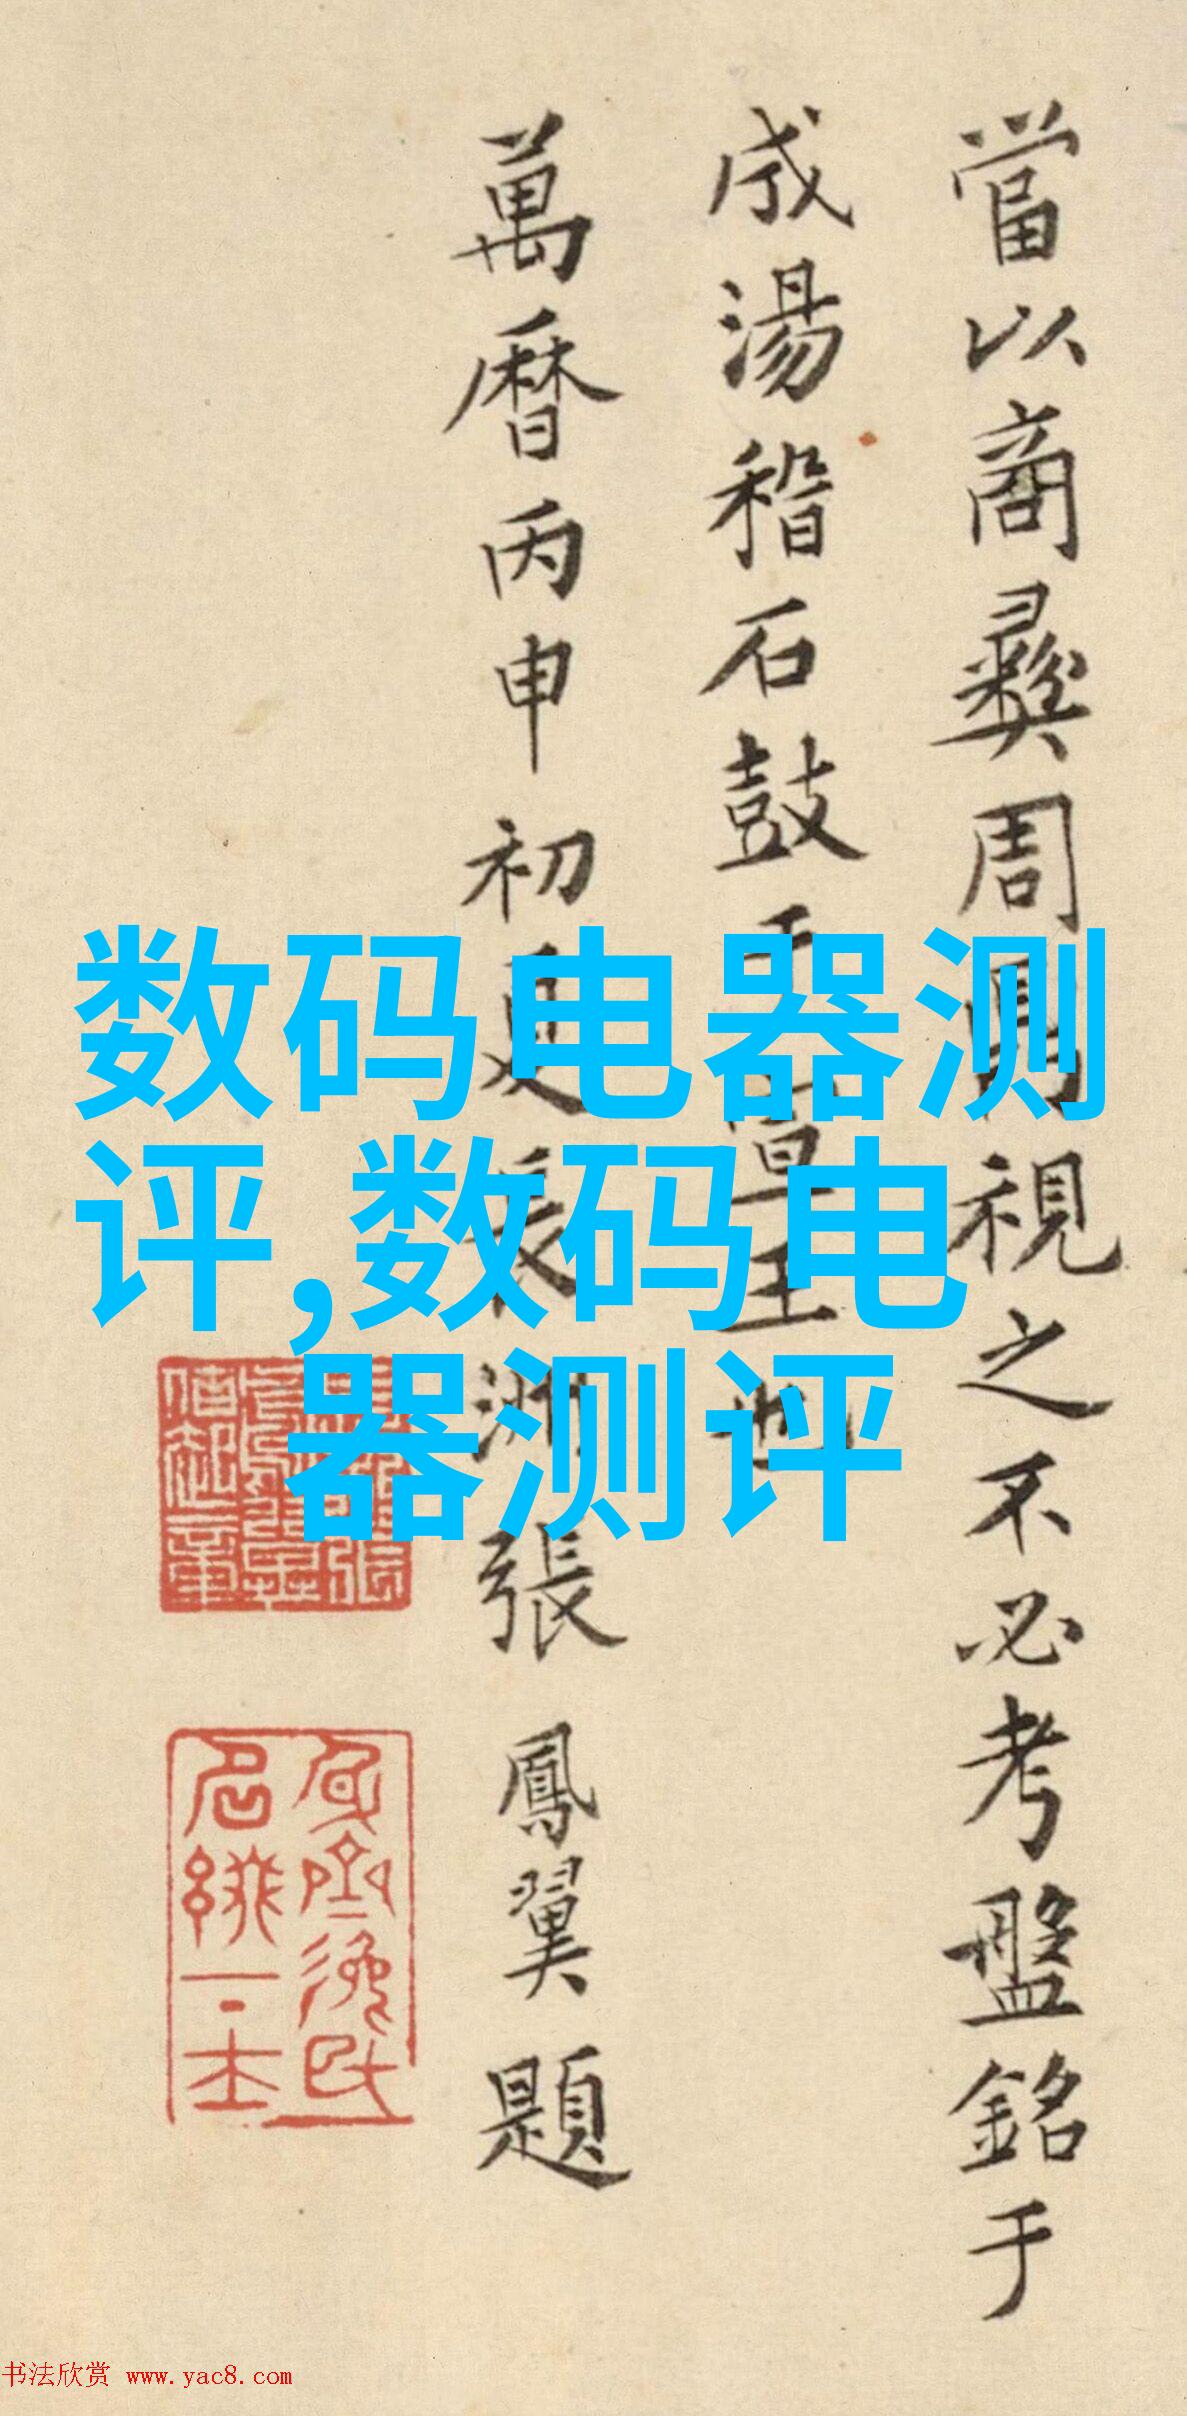 當以商彝周鼎視之不必考盤銘于
成湯稽石鼓于宣王也
萬曆丙申初夏長洲張鳳翼題
数码电器测
评,数码电
器测评
书法欣赏 www.yac8.com